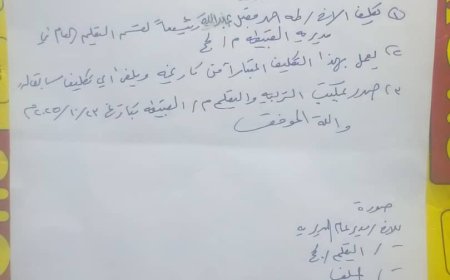 ١) تكليف الاخ/ طه احمد فضل عبدالله رئيساً لقسم التعليم العام في
مديرية القبيطة م/لحج
٢) يعمل بهذا التكليف اعتباراً من تاريخه ويلغى أي تكليف سابق له
٣) صدر بمكتب التربيه والتعليم م/ القبيطه بتاريخ ٢٣/١٠/٢٠٢٥م
والله الموفق
صورة
للاخ/ مدير عام المديريه
〃 / التعليم / لحج
〃 / الملف